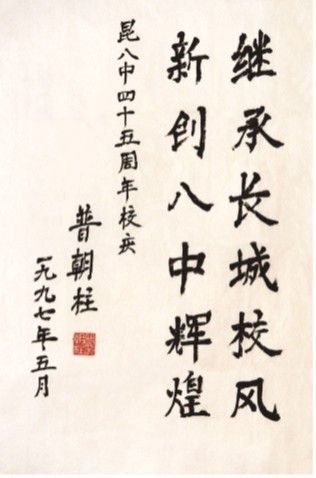 继承长城校风
新创八中辉煌
昆八中四十五周年校庆
普朝柱
一九九七年五月